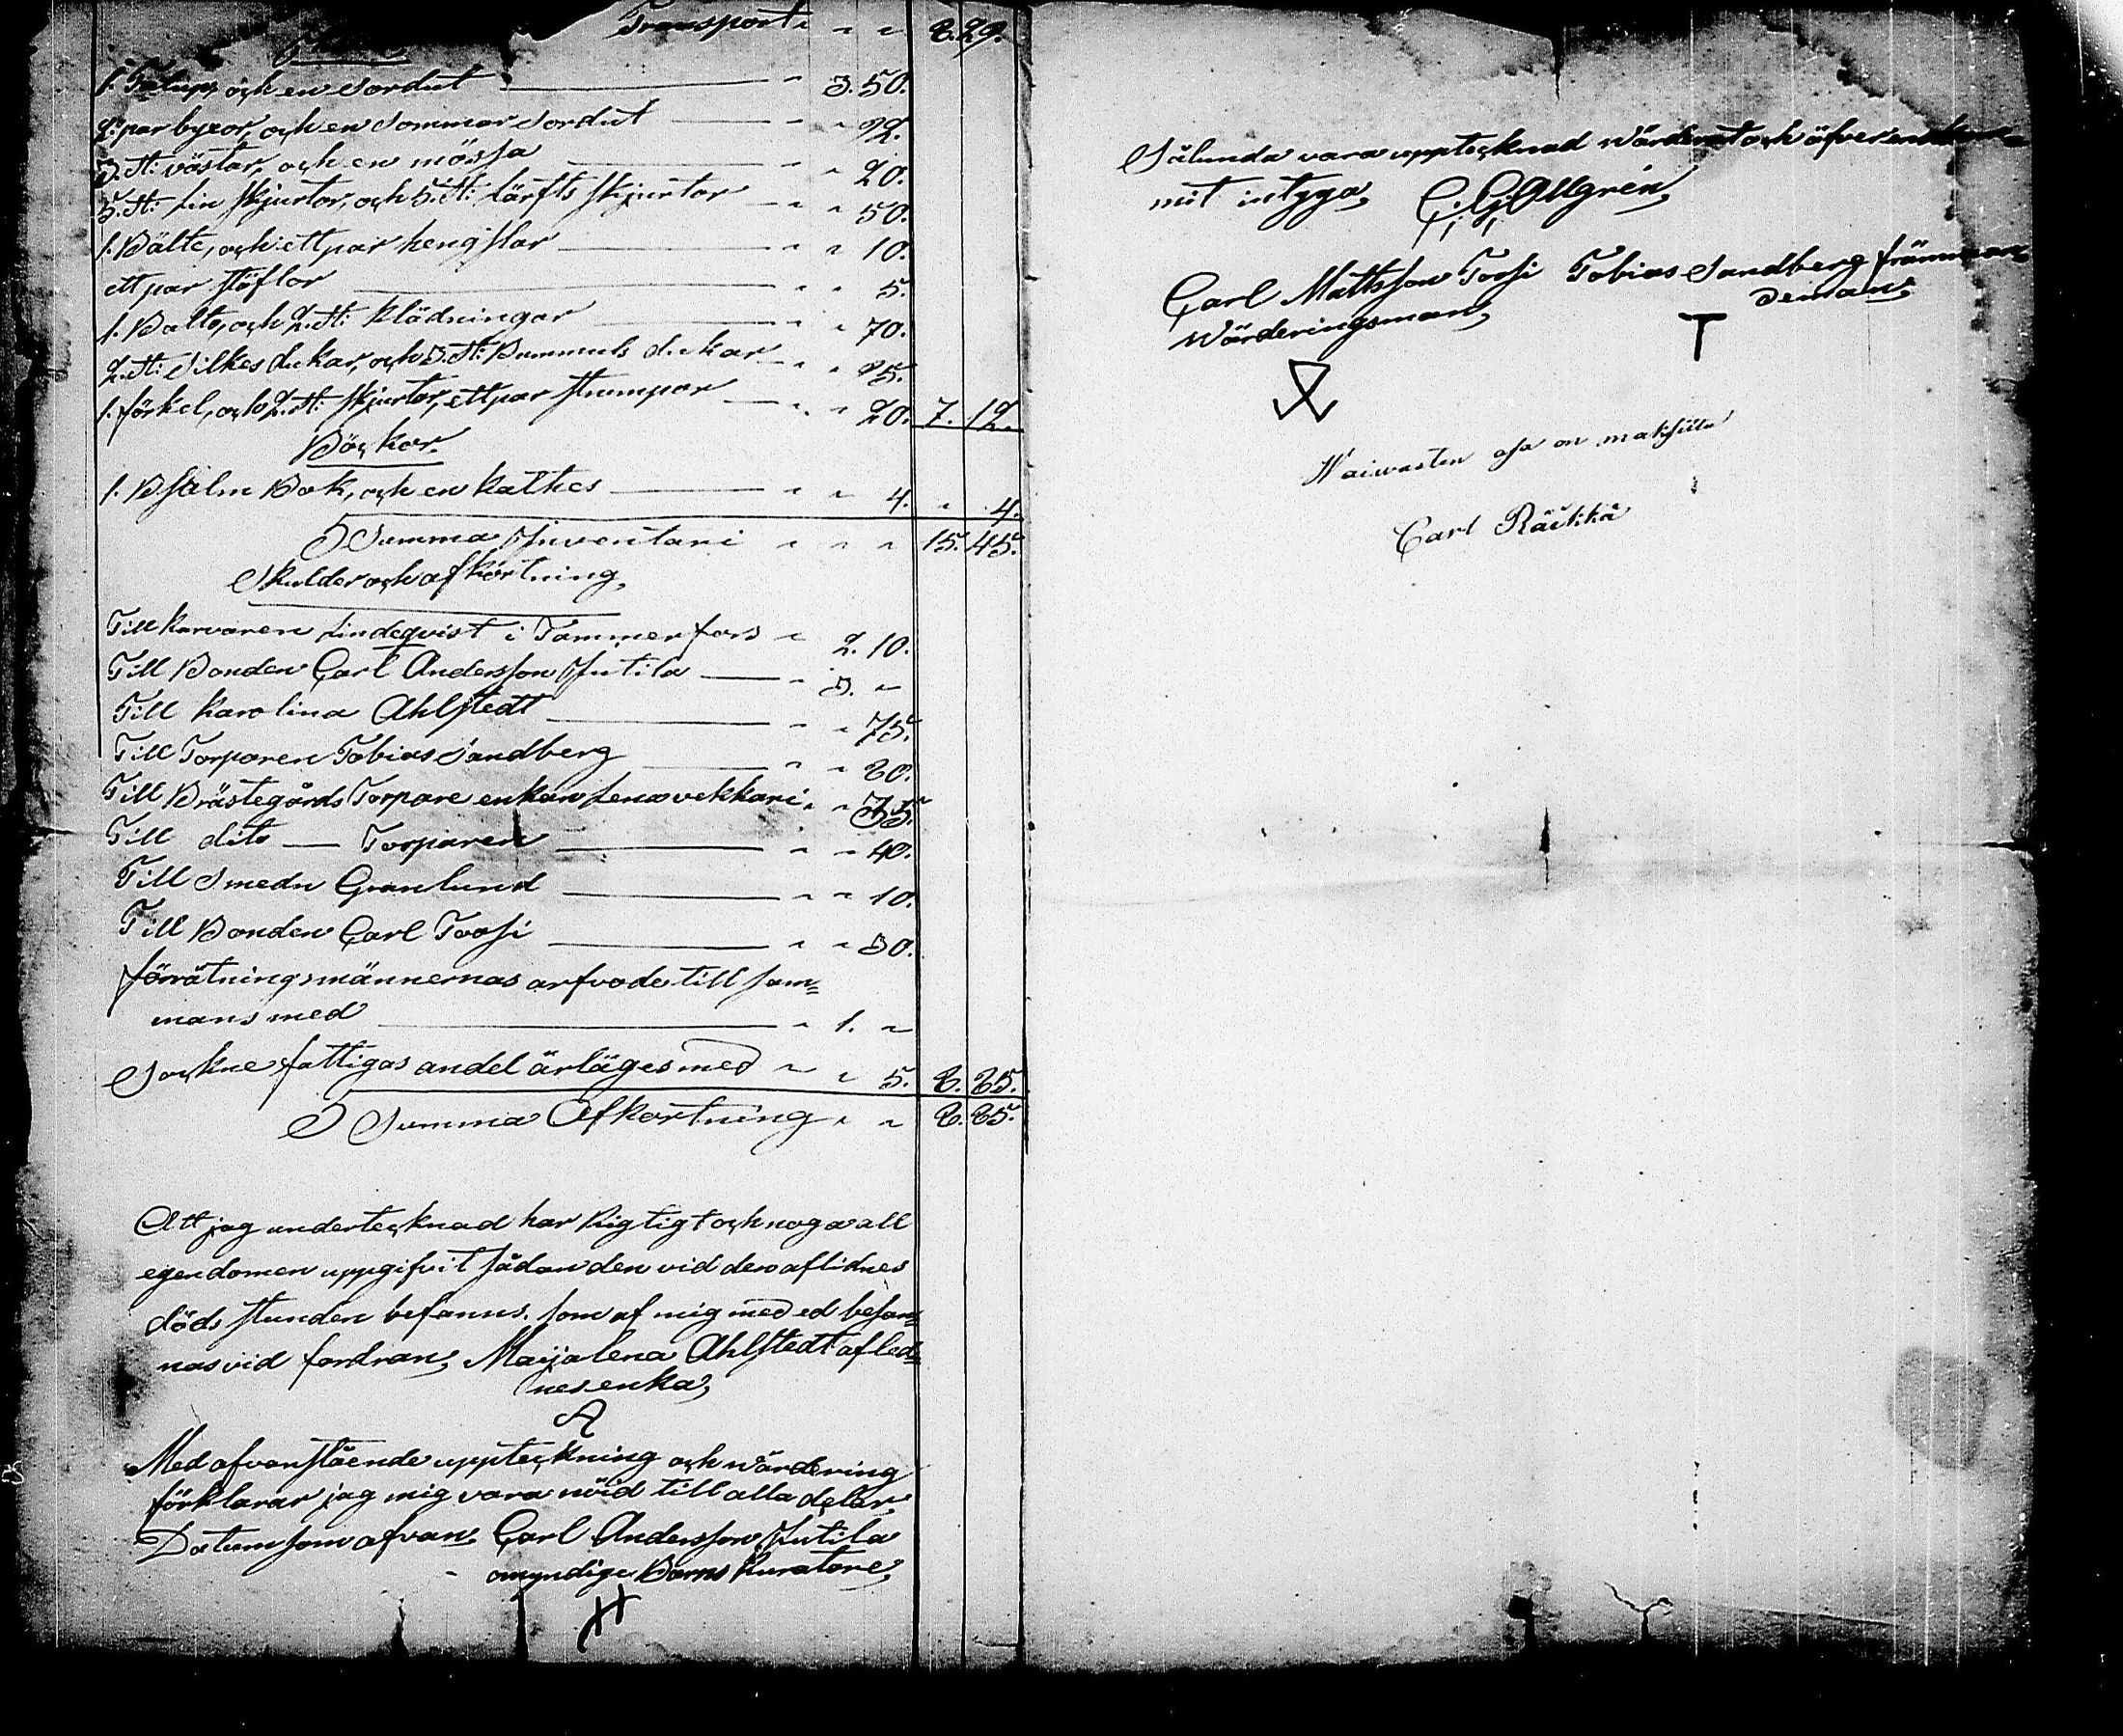 Transport " " 8. 29.
1. Tulup, och en Sordut " 3. 50.
2. par byxor, och en Sommar Sordut " " 92.
3. st: västar, och en mössa " " 20.
5. st: Lin skjurtor, och 5. st: lärfts skjurtor " " 50.
1. Bälte, och ett par hengslar " " 10.
ett par stöflor " " 5.
1. Balto, och 2. st: Klädningar " " 70.
2. st: Silkes dukar, och 3. st: Bummuls dukar " " 95.
1. förkel, och 2. st: skjurtor, ett par strumpor " " 20. 7. 12.
Böcker.
1. Psalm Bok, och en kathes " " 4. " 4.
S Summa Inventari " " " 15. 45.
Skulder och afkörtning,
Till Karvaren Lindeqvist i Tammerfors " 2. 10.
Till Bonden Carl Andersson Jutila " 3. "
Till Karolina Ahlstedt " " 75.
Till Torparen Tobias Sandberg " " 80.
Till Prästegårds Torpare enkan Lena vekkari " " 35.
Till dito — Torparen " " 40.
Till Smedn Granlund " " 10.
Till Bonden Carl Toosi " " 30.
förrätningsmännernas arfvode till sam=
mans med " 1. "
Sockne fattigas andel ärläges med " " 5. 8. 85.
S Summa Afkortning " " 8. 85.
Att jag undertecknad har Rigtigt och noga all
egendomen uppgifvit sådan den vid den aflidnes
döds stunden befanns. som af mig med ed besan=
nas vid fordran, Maijalena Ahlstedt afled=
nes enka,
Med ofvanstående uppteckning och wärdering
förklarar jag mig vara nöid till alla delar
Datum som ofvan Carl Andersson Jutila
omyndige Barns Kuratore,
Sålunda vara upptecknad wärderat och
mit intyga, C. G. Allgrén,
Carl Mattsson Toosi Tobias Sandberg främman
Wärderingsman, deman,
T
Waivasten osa on maksettu
Carl Räikkä